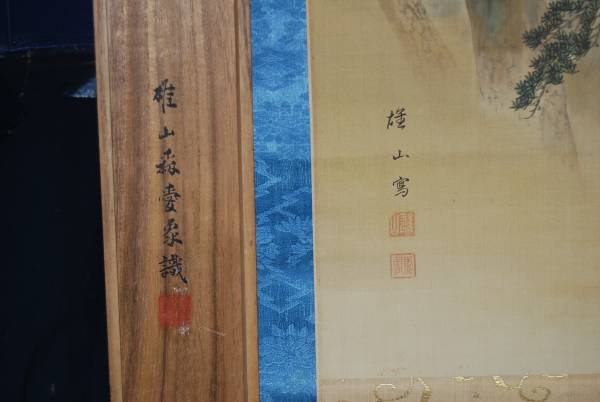 雄山寫
雄山森愛象識